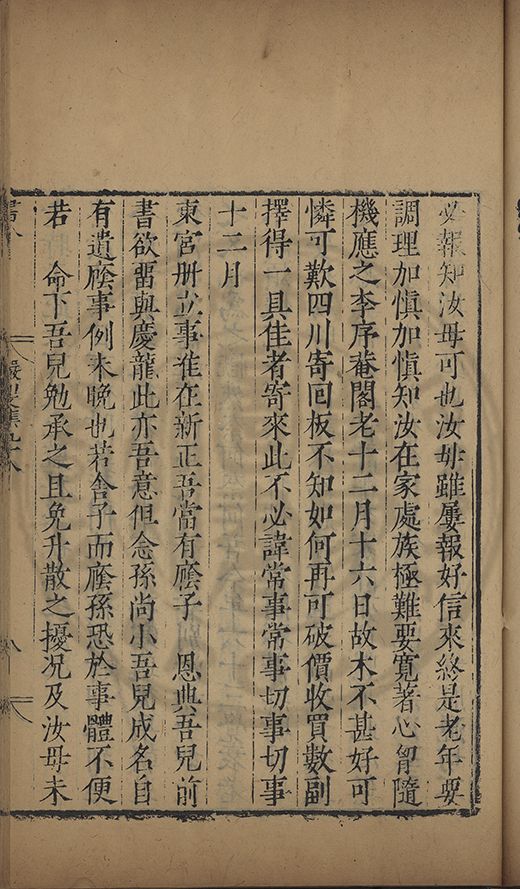 必報知汝母可也汝母雖屢報好信來終是老年要
調理加慎加慎知汝在家處族極難要寬著心胷隨
機應之李序菴閣老十二月十六日故木不甚好可
憐可歎四川寄回板不知如何再可破價收買數副
擇得一具佳者寄來此不必諱常事常事切事切事
十二月
東宮冊立事准在新正吾當有廕子 恩典吾兒前
書欲畱與慶龍此亦吾意但念孫尚小吾兒成名自
有遺廕事例未晚也若舍子而廕孫恐於事體不便
若 命下吾兒勉承之且免升散之擾况及汝母未